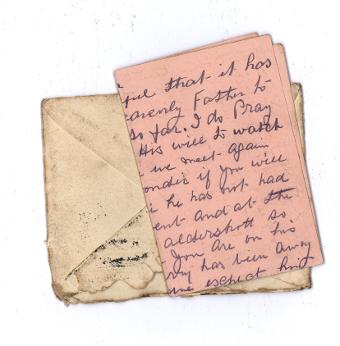 ful that it has
eavenly Father to
so far. I do Pray
His will to watch
we meet again
onder if you will
he has not had
ent and at the
aldershott so
you are on his
ry has been away
me expect him